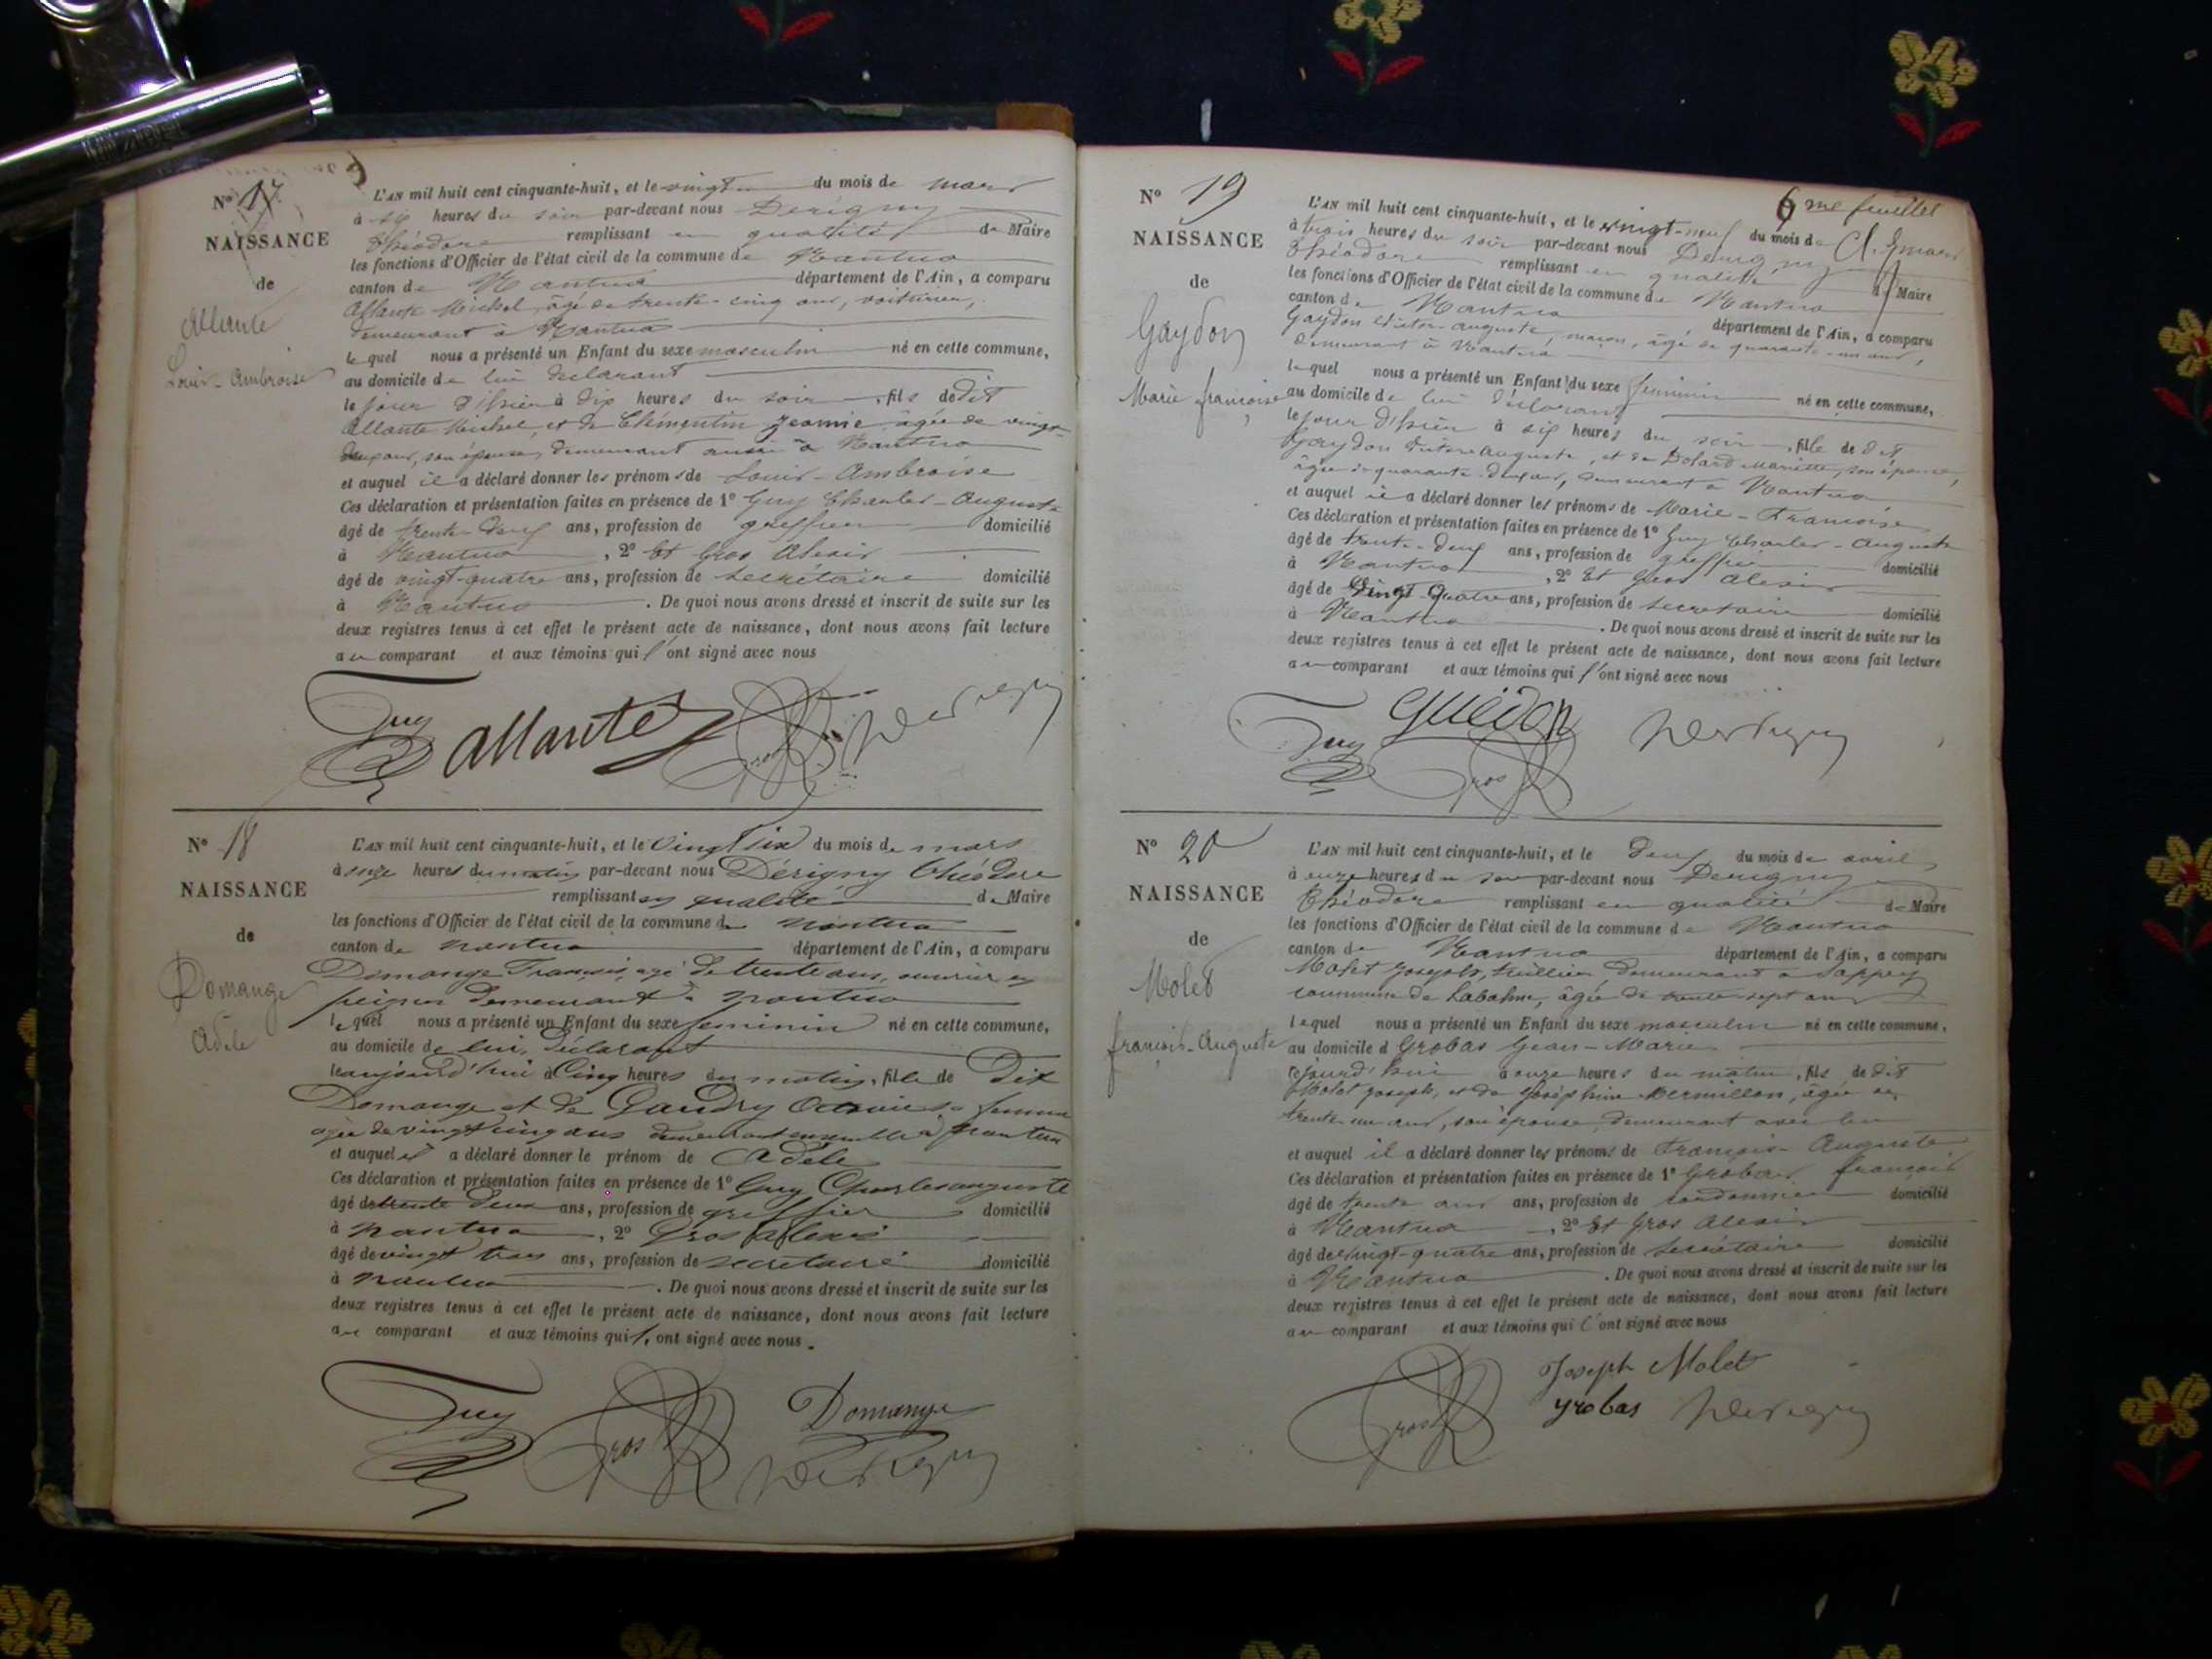 N° 17
NAISSANCE
de
Allante
Louis-Ambroise
L'AN mil huit cent cinquante-huit, et le vingt du mois de mars
à six heures du soir par-devant nous Derigny
Théodore remplissant en qualité de Maire
les fonctions d'Officier de l'état civil de la commune de Nantua
canton de Nantua département de l'Ain, a comparu
Allante Michel, âgé de trente-cinq ans, voiturier,
demeurant à Nantua
lequel nous a présenté un Enfant du sexe masculin né en cette commune,
au domicile de lui déclarant
le jour d'hier à dix heures du soir, fils de dit
Allante Michel, et de Clémentin Jeannie âgée de vingt-
deux ans, son épouse, demeurant aussi à Nantua
et auquel il a déclaré donner les prénoms de Louis-Ambroise
Ces déclaration et présentation faites en présence de 1° Guy Charles-Auguste
âgé de trente-deux ans, profession de greffier domicilié
à Nantua, 2° Et Gros Alexis
âgé de vingt-quatre ans, profession de secrétaire domicilié
à Nantua. De quoi nous avons dressé et inscrit de suite sur les
deux registres tenus à cet effet le présent acte de naissance, dont nous avons fait lecture
au comparant et aux témoins qui l'ont signé avec nous
Guy Allante Gros Derigny
N° 18
NAISSANCE
de
Domange
Adèle
L'AN mil huit cent cinquante-huit, et le vingt six du mois de mars
à onze heures du matin par-devant nous Dérigny Théodore
remplissant en qualité de Maire
les fonctions d'Officier de l'état civil de la commune de Nantua
canton de Nantua département de l'Ain, a comparu
Domange François, agé de trente ans, ouvrier en
peignes demeurant à Nantua
lequel nous a présenté un Enfant du sexe feminin né en cette commune,
au domicile de lui, déclarant
le aujourd'hui à Cinq heures du matin, fille de Dit
Domange et de Gaudry Octavie sa femme
agée de vingt cinq ans demeurant ensemble à Nantua
et auquel il a déclaré donner le prénom de Adèle
Ces déclaration et présentation faites en présence de 1° Guy Charles auguste
âgé de trente deux ans, profession de greffier domicilié
à Nantua, 2° Gros Alexis
âgé de vingt trois ans, profession de secretaire domicilié
à Nantua. De quoi nous avons dressé et inscrit de suite sur les
deux registres tenus à cet effet le présent acte de naissance, dont nous avons fait lecture
au comparant et aux témoins qui l'ont signé avec nous.
Guy Gros Domange
Derigny
6me feuillet
N° 19
NAISSANCE
de
Gaydon
Marie françoise
L'AN mil huit cent cinquante-huit, et le vingt-neuf du mois de mars
à trois heures du soir par-devant nous Derigny
Théodore remplissant en qualité de Maire
les fonctions d'Officier de l'état civil de la commune de Nantua
canton de Nantua département de l'Ain, a comparu
Gaydon Victor auguste, maçon, âgé de quarante-un ans,
demeurant à Nantua
lequel nous a présenté un Enfant du sexe feminin né en cette commune,
au domicile de lui déclarant
le jour d'hier à six heures du soir, fille de dit
Gaydon Victor auguste, et de Dolard Mariette, son épouse,
âgée de quarante-deux ans, demeurant à Nantua
et auquel il a déclaré donner les prénoms de Marie-Françoise
Ces déclaration et présentation faites en présence de 1° Guy Charles-Auguste
âgé de trente-deux ans, profession de greffier domicilié
à Nantua, 2° Et Gros Alexis
âgé de Vingt-Quatre ans, profession de secretaire domicilié
à Nantua. De quoi nous avons dressé et inscrit de suite sur les
deux registres tenus à cet effet le présent acte de naissance, dont nous avons fait lecture
au comparant et aux témoins qui l'ont signé avec nous
Guédon
Guy Gros Derigny
N° 20
NAISSANCE
de
Molet
françois-Auguste
L'AN mil huit cent cinquante-huit, et le deux du mois de avril
à onze heures du par-devant nous Derigny
Théodore remplissant en qualité de Maire
les fonctions d'Officier de l'état civil de la commune de Nantua
canton de Nantua département de l'Ain, a comparu
Molet Joseph, demeurant à Sappey
commune de Labalme, âgé de trente-sept ans
lequel nous a présenté un Enfant du sexe masculin né en cette commune,
au domicile d Grobas Jean-Marie
cejourd'hui à onze heures du matin, fils de dit
Molet Joseph, et de Joséphine Mermillon, âgée de
trente un ans, son épouse, demeurant avec lui
et auquel il a déclaré donner les prénoms de François-Auguste
Ces déclaration et présentation faites en présence de 1° Grobas françois
âgé de trente ans ans, profession de cordonnier domicilié
à Nantua, 2° Et Gros Alexis
âgé de vingt-quatre ans, profession de Secrétaire domicilié
à Nantua. De quoi nous avons dressé et inscrit de suite sur les
deux registres tenus à cet effet le présent acte de naissance, dont nous avons fait lecture
au comparant et aux témoins qui l'ont signé avec nous
Joseph Molet
Gros grobas Derigny